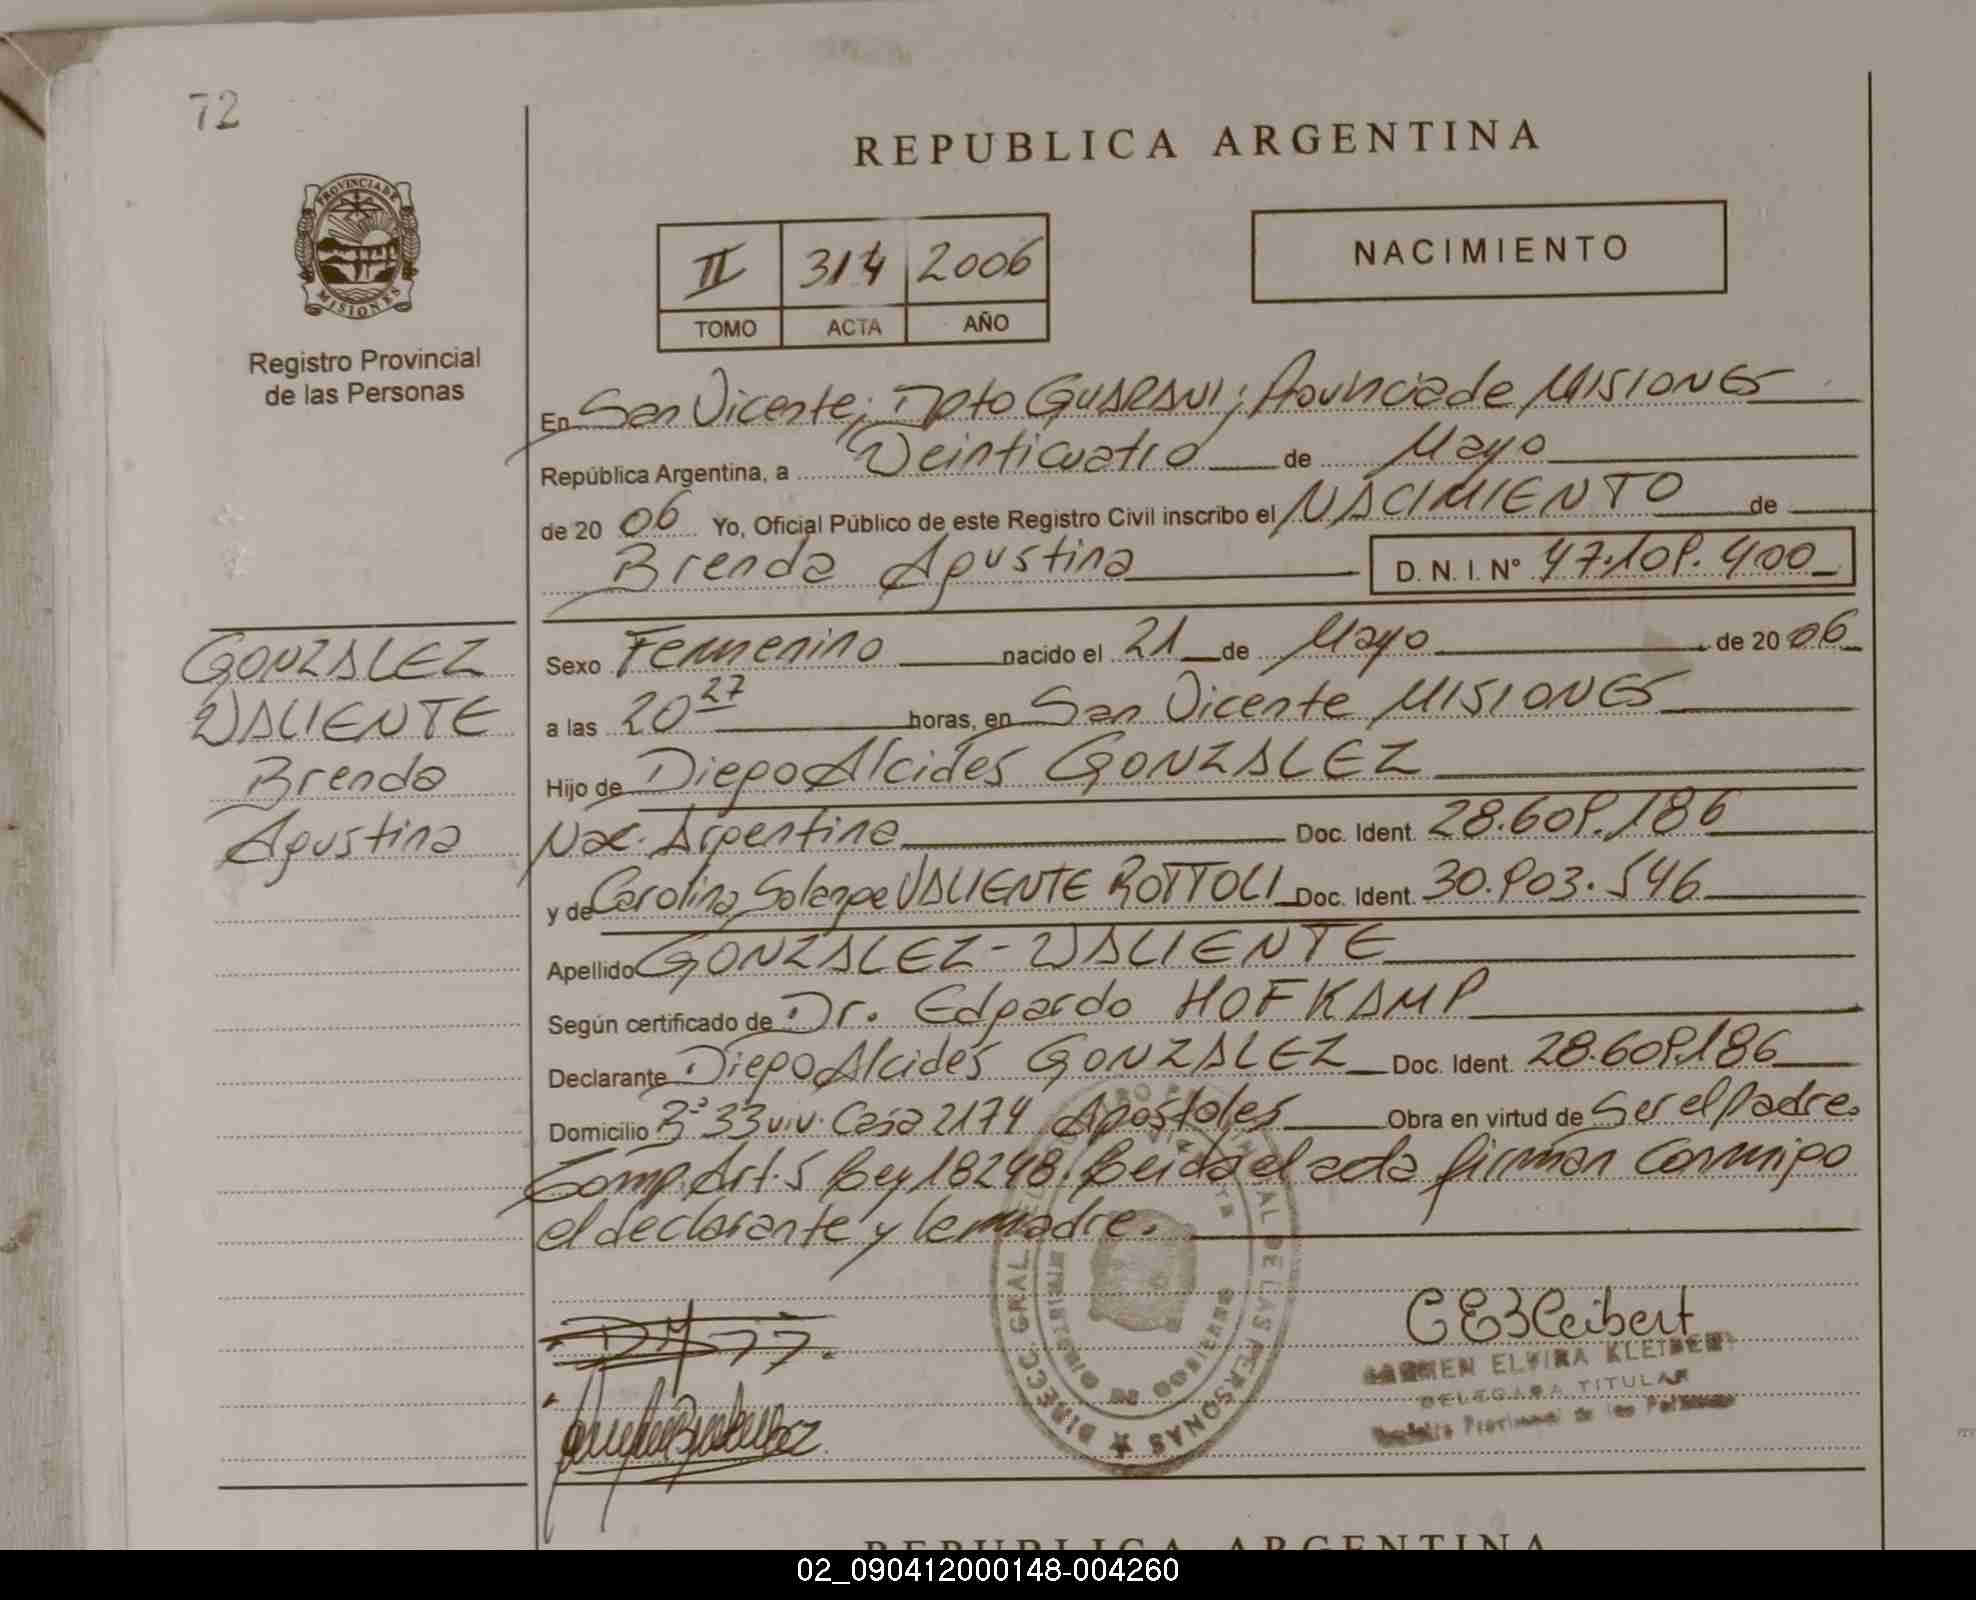 72
REPUBLICA ARGENTINA
PROVINCIA DE
MISIONES
Registro Provincial
de las Personas
II 314 2006
TOMO ACTA AÑO
NACIMIENTO
En San Vicente; Dpto GUARANI; Provincia de MISIONES
República Argentina, a Veinticuatro de Mayo
de 20 06 Yo, Oficial Público de este Registro Civil inscribo el NACIMIENTO de
Brenda Agustina D. N. I. Nº 47.109.400
GONZALEZ
VALIENTE
Brenda
Agustina
Sexo Femenino nacido el 21 de Mayo de 20 06
a las 20 27 horas, en San Vicente MISIONES
Hijo de Diego Alcides GONZALEZ
Nac. Argentina Doc. Ident. 28.609.186
y de Carolina Solange VALIENTE ROTTOLI Doc. Ident. 30.903.546
Apellido GONZALEZ - VALIENTE
Según certificado de Dr. Edgardo HOFKAMP
Declarante Diego Alcides GONZALEZ Doc. Ident. 28.609.186
Domicilio Bº 33 viv. Casa 2174 Apostoles Obra en virtud de Ser el padre.
Comp. Art. 5 Ley 18248. Leida el acta firman conmigo
el declarante y la madre.
CEKleibert
CARMEN ELVIRA KLEIBERT
DELEGADA TITULAR
Registro Provincial de las Personas
DIRECC. GRAL. DEL REGISTRO PROVINCIAL DE LAS PERSONAS
REPUBLICA ARGENTINA
02_090412000148-004260